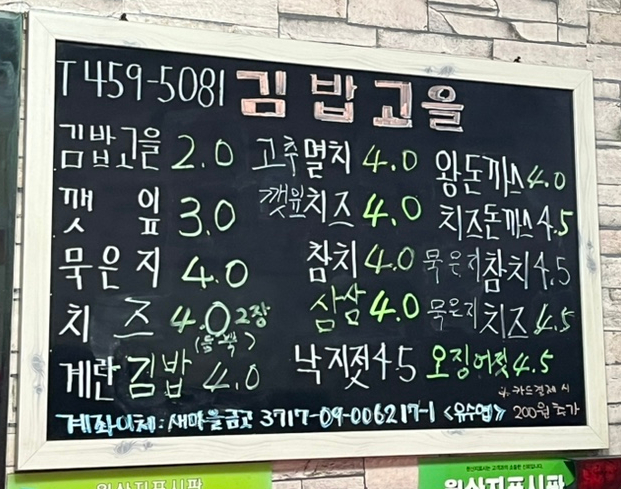 T 459-5081 김밥고을
김밥고을 2.0 고추멸치 4.0 왕돈까스 4.0
깻잎 3.0 깻잎치즈 4.0 치즈돈까스 4.5
묵은지 4.0 참치 4.0 묵은지참치 4.5
치즈 4.0 2장 삼삼 4.0 묵은지치즈 4.5
계란김밥 4.0 낙지젓 4.5 오징어젓 4.5
계좌이체: 새마을금고 3717-09-006217-1 <유수엽>
카드결제 시
200원 추가
원산지표시판 원산지표시판